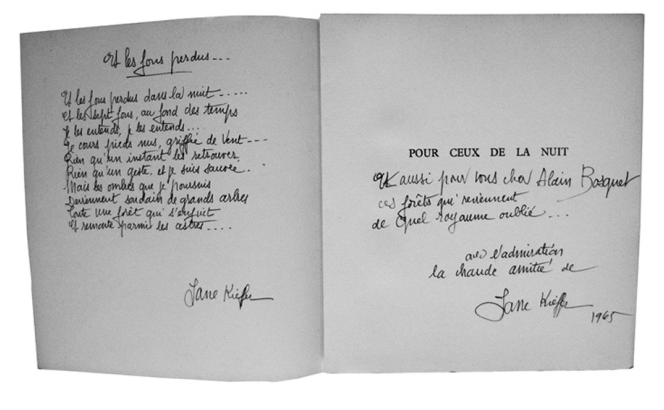 Et les fous perdus...
Et les fous perdus dans la nuit.....
Et les sept fous, au fond des temps
Je les entends, je les entends...
Je cours pieds nus, griffée de vent----
Rien qu'un instant les retrouver
Rien qu'un geste, et je suis sauvée..
Mais les ombres que je poursuis
Deviennent soudain de grands arbres
Toute une forêt qui s'enfuit
Et remonte parmi les astres....
Jane Kieffer
POUR CEUX DE LA NUIT
Et aussi pour vous cher Alain Bosquet
ces forêts qui reviennent
de quel royaume oublié...
avec l'admiration
la chaude amitié de
Jane Kieffer
1965